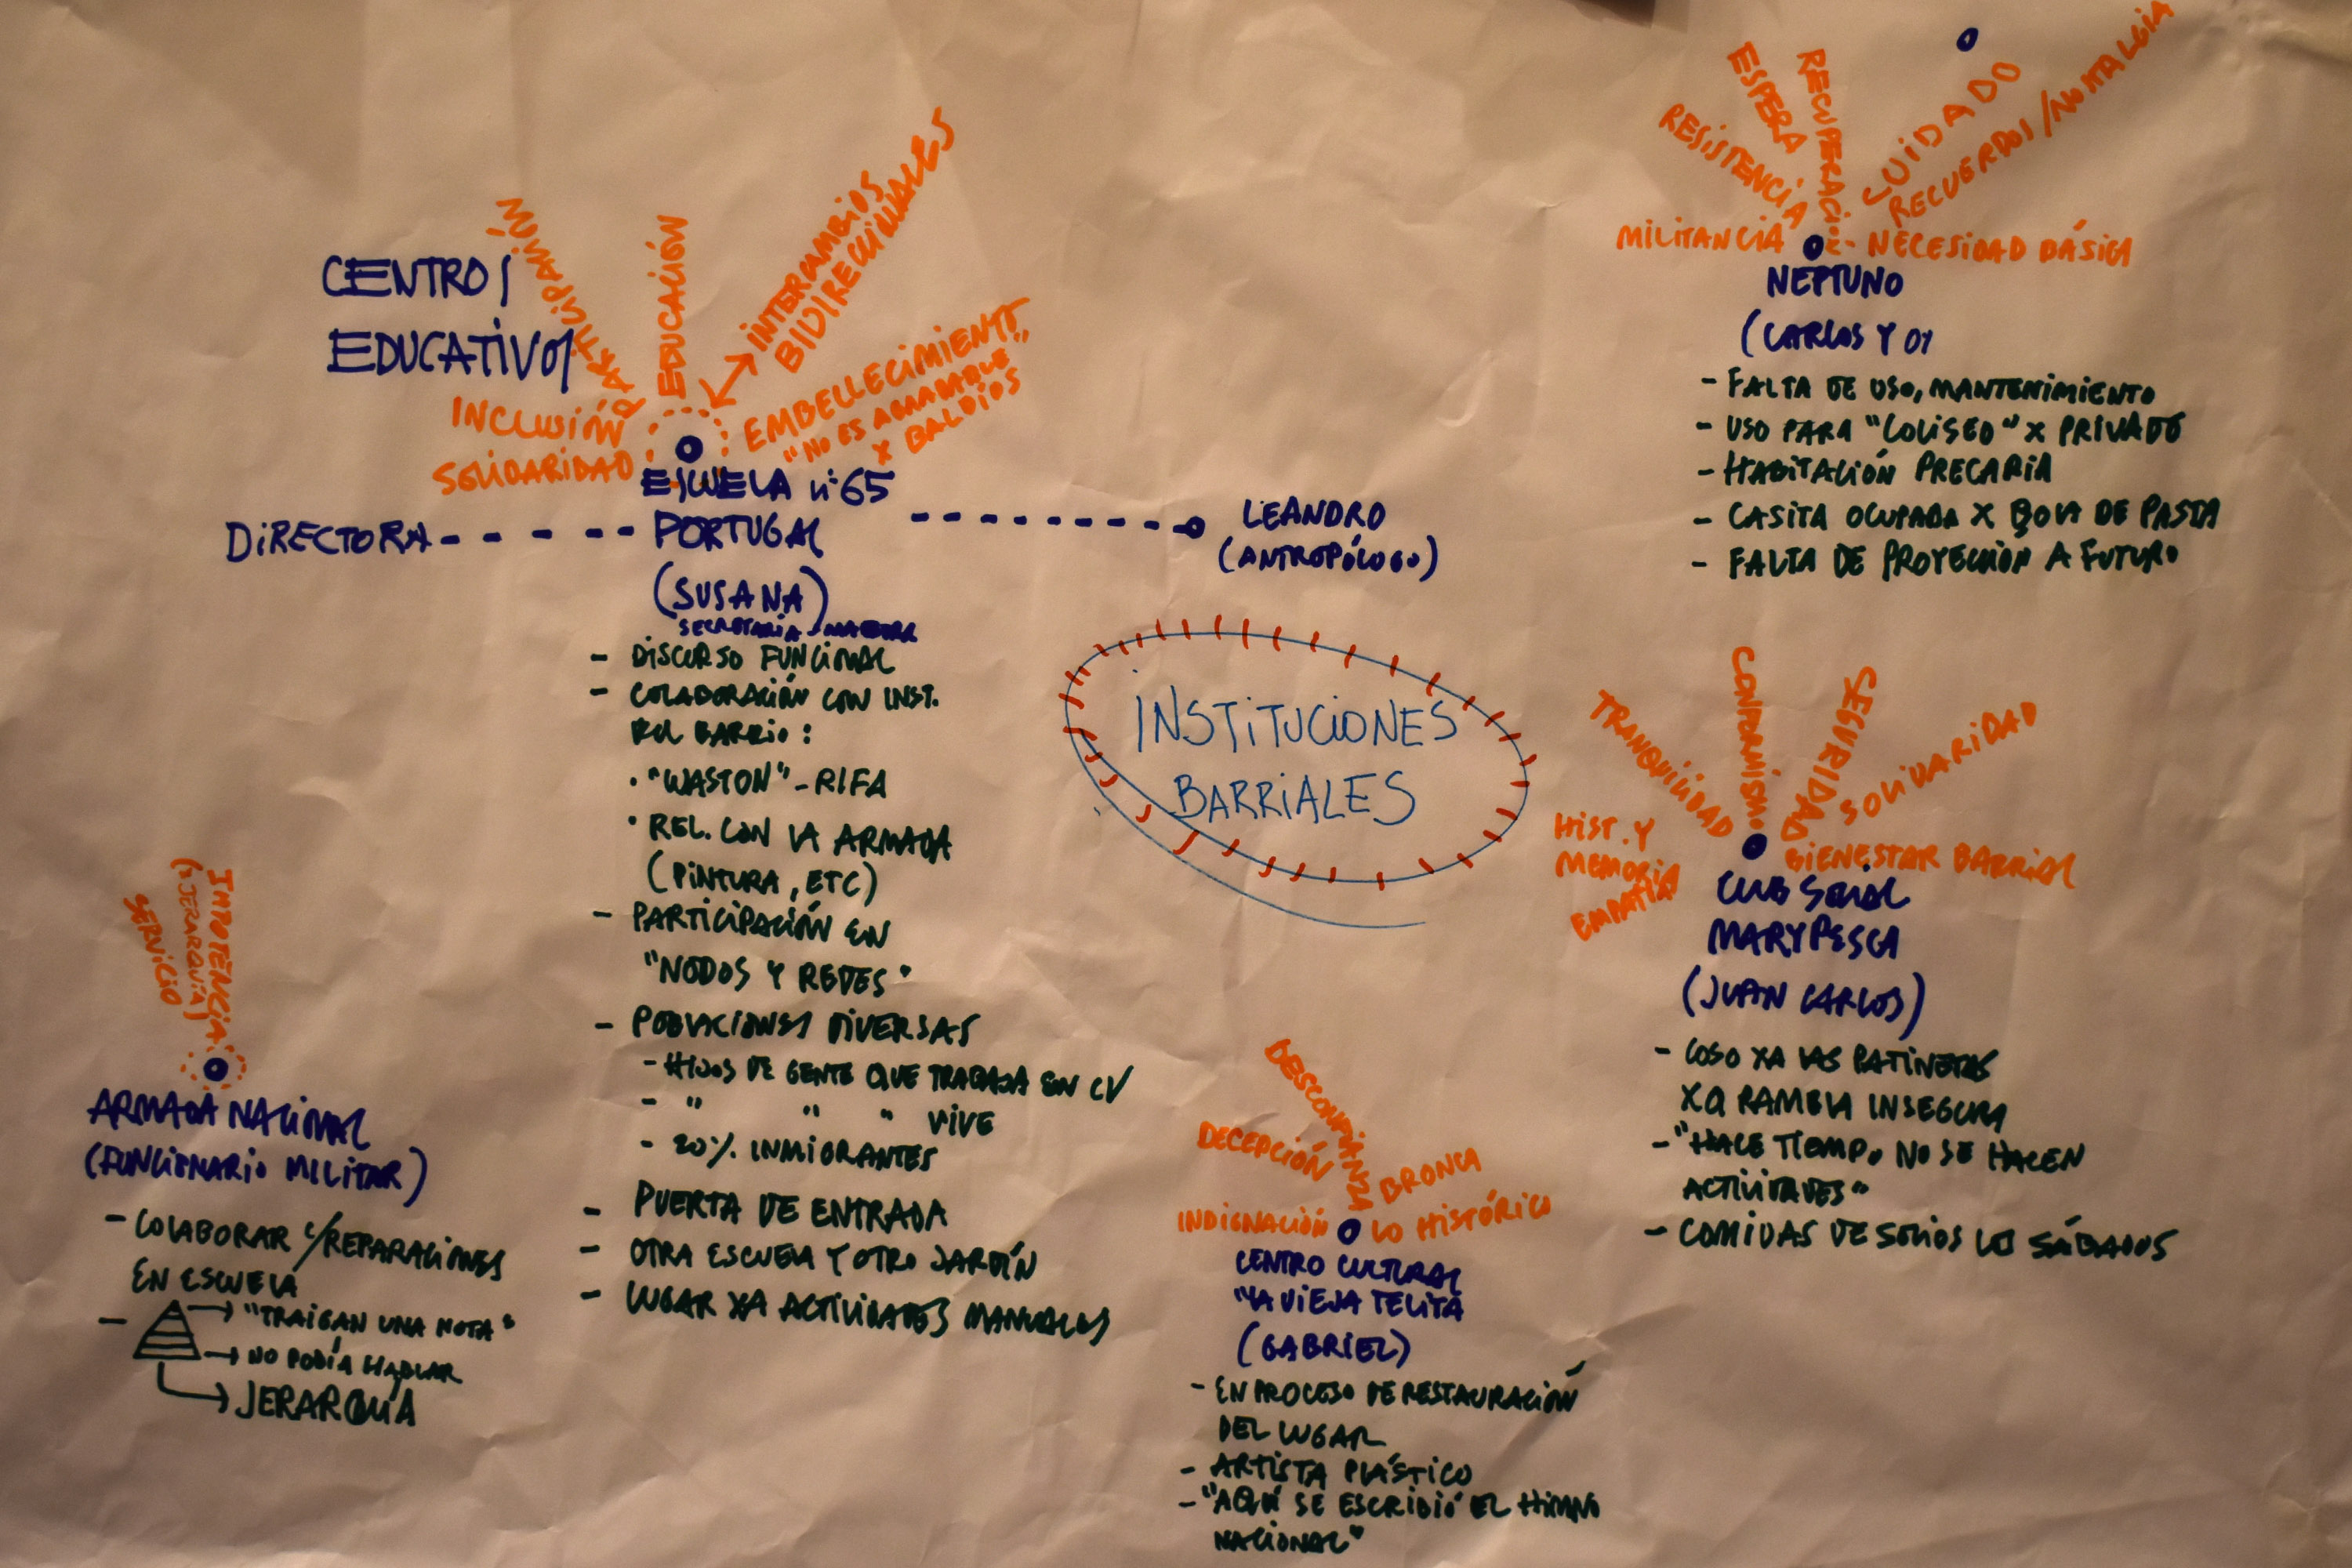 CENTROS
EDUCATIVOS
PARTICIPACIÓN
EDUCACIÓN
INTERCAMBIOS
BIDIRECCIONALES
INCLUSIÓN
SOLIDARIDAD
EMBELLECIMIENTO
"NO ES AGRADABLE"
X BALDÍOS
ESCUELA Nº65
DIRECTORA
PORTUGAL
LEANDRO
(ANTROPÓLOGO)
(SUSANA)
SECRETARIA - MAESTRA
- DISCURSO FUNCIONAL
- COLABORACIÓN CON INST.
DEL BARRIO:
· "WASTON" - RIFA
· REL. CON LA ARMADA
(PINTURA, ETC)
- PARTICIPACIÓN EN
"NODOS Y REDES"
- POBLACIONES DIVERSAS
- HIJOS DE GENTE QUE TRABAJA EN CV
- " " " VIVE
- 20% INMIGRANTES
- PUERTA DE ENTRADA
- OTRA ESCUELA Y OTRO JARDÍN
- LUGAR XA ACTIVIDADES MANUALES
INSTITUCIONES
BARRIALES
IMPOTENCIA
(X JERARQUÍA)
SERVICIO
ARMADA NACIONAL
(FUNCIONARIO MILITAR)
- COLABORAR C/REPARACIONES
EN ESCUELA
- "TRAIGAN UNA NOTA"
NO PODÍA HABLAR
JERARQUÍA
DESCONFIANZA
DECEPCIÓN
BRONCA
INDIGNACIÓN
LO HISTÓRICO
CENTRO CULTURAL
"LA VIEJA TELITA
(GABRIEL)
- EN PROCESO DE RESTAURACIÓN
DEL LUGAR
- ARTISTA PLÁSTICO
- "AQUÍ SE ESCRIBIÓ EL HIMNO
NACIONAL"
RESISTENCIA
ESPERA
RECUPERACIÓN
CUIDADO
RECUERDOS/NOSTALGIA
MILITANCIA
NECESIDAD BÁSICA
NEPTUNO
(CARLOS Y
- FALTA DE USO, MANTENIMIENTO
- USO PARA "COLISEO" X PRIVADO
- HABITACIÓN PRECARIA
- CASITA OCUPADA X BOCA DE PASTA
- FALTA DE PROYECCIÓN A FUTURO
TRANQUILIDAD
CONFORMISMO
SEGURIDAD
SOLIDARIDAD
HIST. Y
MEMORIA
EMPATÍA
BIENESTAR BARRIAL
CLUB SOCIAL
MARYPESCA
(JUAN CARLOS)
- COSO XA LAS PATINETAS
XQ RAMBLA INSEGURA
- "HACE TIEMPO NO SE HACEN
ACTIVIDADES"
- COMIDAS DE SOCIOS LOS SÁBADOS